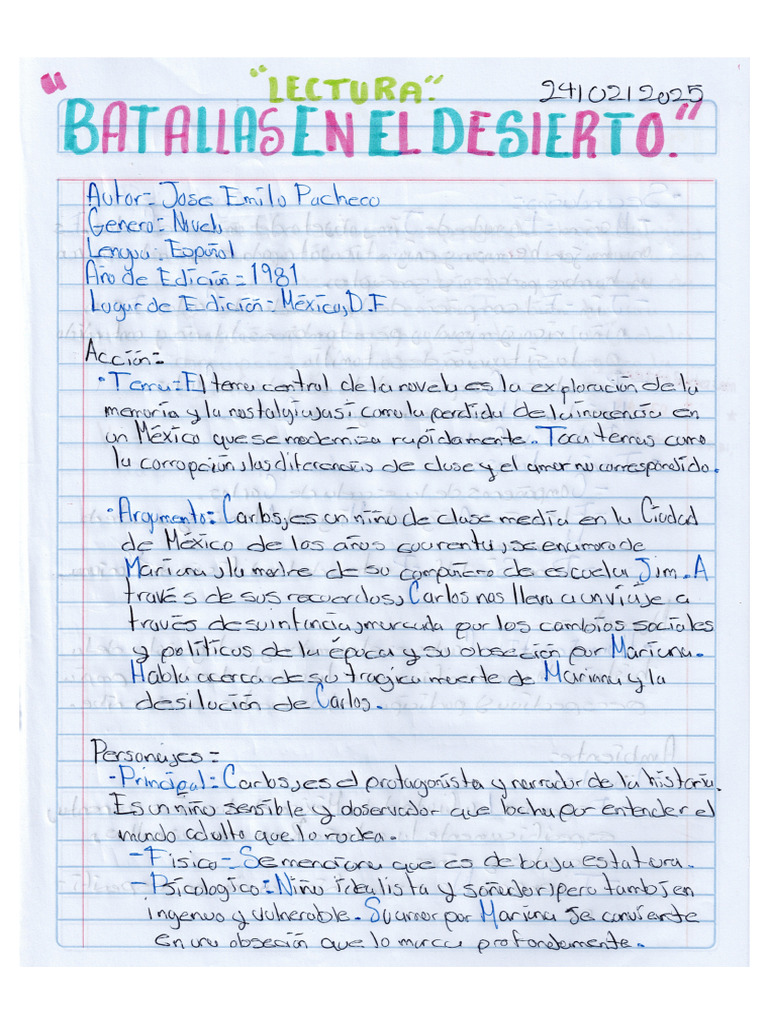 "LECTURA."
24/02/2025
"BATALLAS EN EL DESIERTO."
Autor= Jose Emilo Pacheco
Genero= Novela
Lengua= Español
Año de Edición= 1981
Lugar de Edición= México, D.F
Acción=
• Tema= El tema central de la novela es la exploración de la
memoria y la nostalgia, asi como la perdida de la inocencia en
un México que se moderniza rapidamente. Toca temas como
la corropción, las diferencias de clase y el amor no correspondido.
• Argumento: Carlos, es un niño de clase media en la Ciudad
de México de los años cuarenta, se enamora de
Mariana, la madre de su compañero de escuela Jim. A
través de sus recuerdos, Carlos nos lleva a un viaje a
través de su infancia, marcada por los cambios sociales
y políticos de la época y su obseción por Mariana.
Habla acerca de su tragica muerte de Mariana y la
desilución de Carlos.
Personajes=
- Principal: Carlos, es el protagonista y narrador de la historia.
Es un niño sensible y observador que locha por entender el
mundo adulto que lo rodea.
- Fisico= Se menciona que es de baja estatura.
- Psicologico= Niño idealista y soñador, pero tambien
ingenuo y vulnerable. Su amor por Mariana se convierte
en una obseción que lo marca profondamente.